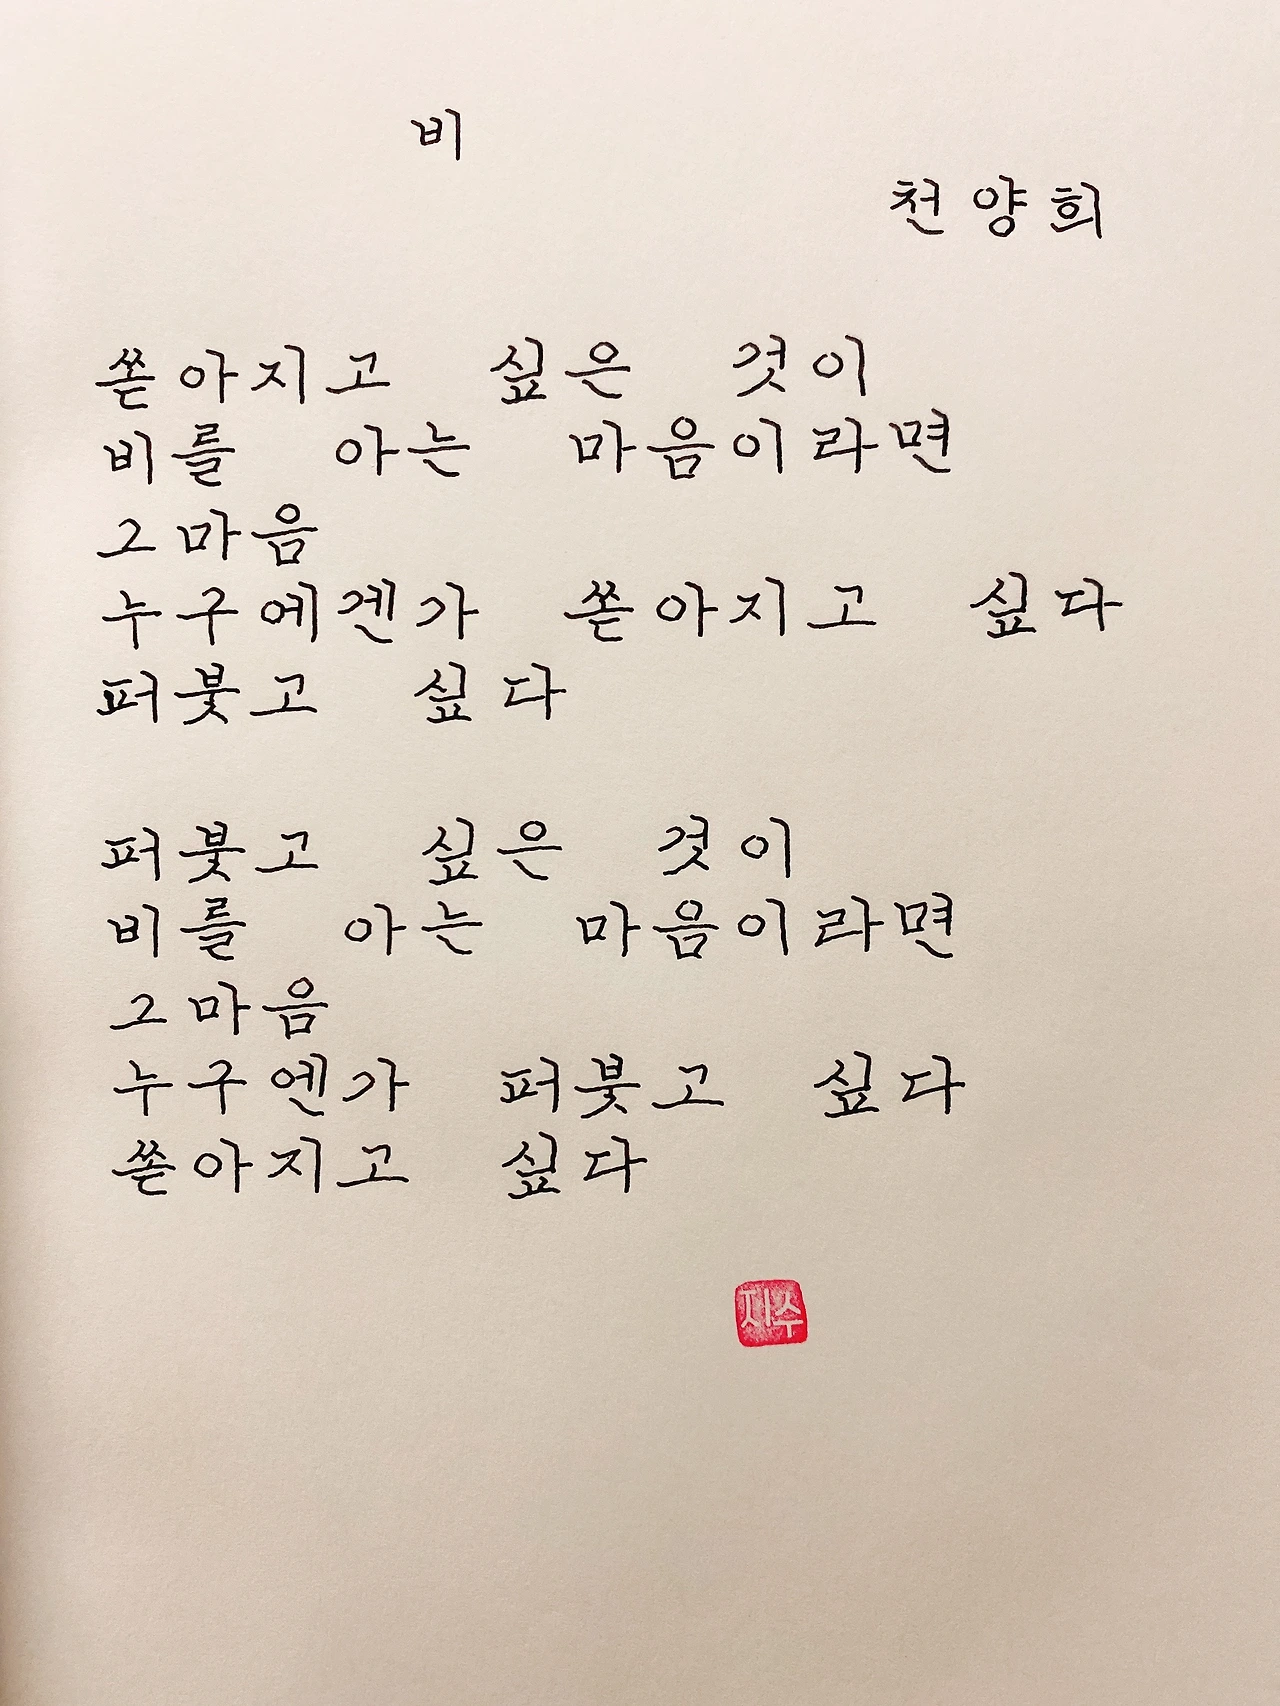 비
천양희
쏟아지고 싶은 것이
비를 아는 마음이라면
그마음
누구에겐가 쏟아지고 싶다
퍼붓고 싶다
퍼붓고 싶은 것이
비를 아는 마음이라면
그마음
누구엔가 퍼붓고 싶다
쏟아지고 싶다
지수